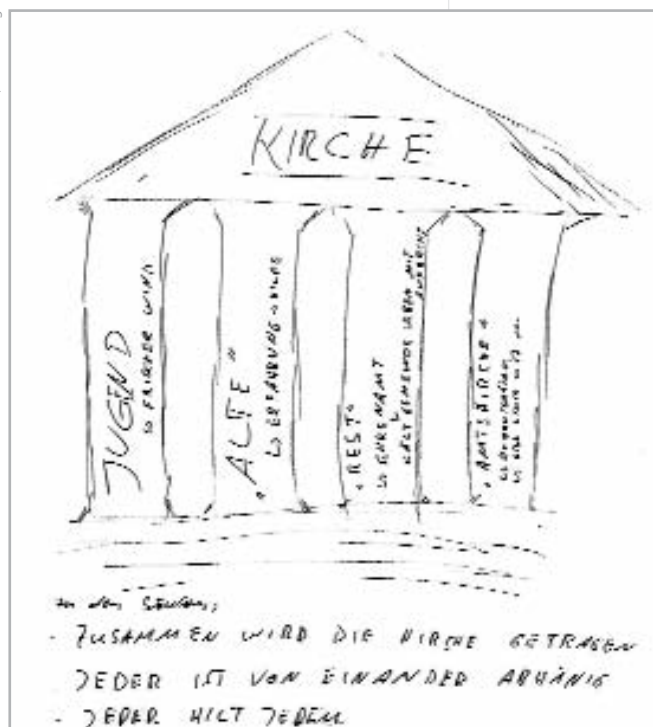 KIRCHE
JUGEND
↳ FRISCHER WIND
„ALTE"
↳ ERFAHRUNG
„REST"
↳ EHRENAMT
↳
HÄLT GEMEINDE LEBEN MIT
„AMTSKIRCHE"
↳
↳
zu den Säulen:
- ZUSAMMEN WIRD DIE KIRCHE GETRAGEN
JEDER IST VON EINANDER ABHÄNIG
- JEDER HILT JEDEM